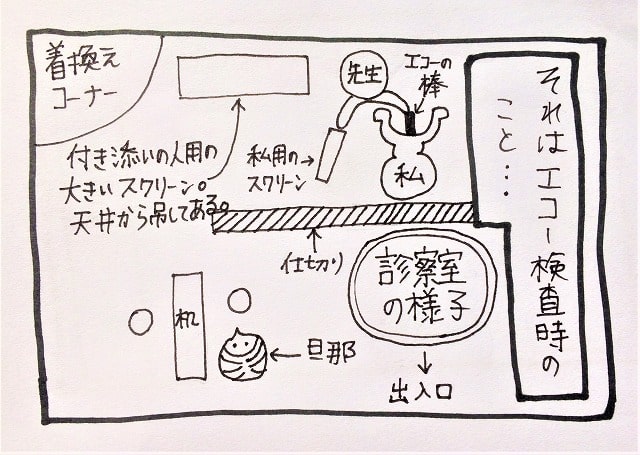 それはエコー検査時の
こと…
エコーの
棒
先生
私
私用の
スクリーン
着換え
コーナー
付き添いの人用の
大きいスクリーン。
天井から吊してある。
仕切り
診察室
の様子
出入口
机
旦那